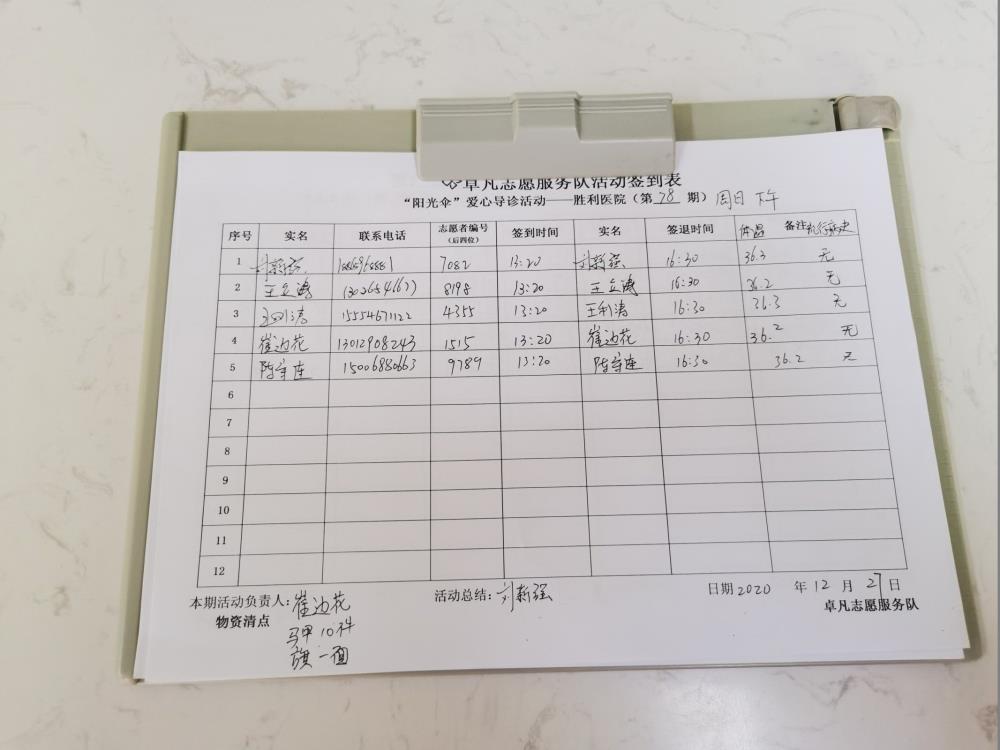 卓凡志愿服务队活动签到表
“阳光伞”爱心导诊活动——胜利医院（第78期）周日 下午
序号 实名 联系电话 志愿者编号（后四位） 签到时间 实名 签退时间 体温 备注 旅行病史
1 刘新强 7082 13:20 刘新强 16:30 36.3 无
2 王立涛 8198 13:20 王立涛 16:30 36.2 无
3 王利涛 15554671122 4355 13:20 王利涛 16:30 36.3 无
4 崔边花 13012908243 1515 13:20 崔边花 16:30 36.2 无
5 陈宝连 15006880663 9789 13:20 陈宝连 16:30 36.2 无
6
7
8
9
10
11
12
本期活动负责人：崔边花 活动总结：刘新强 日期2020年12月27日
物资清点 卓凡志愿服务队
马甲10件
旗一面